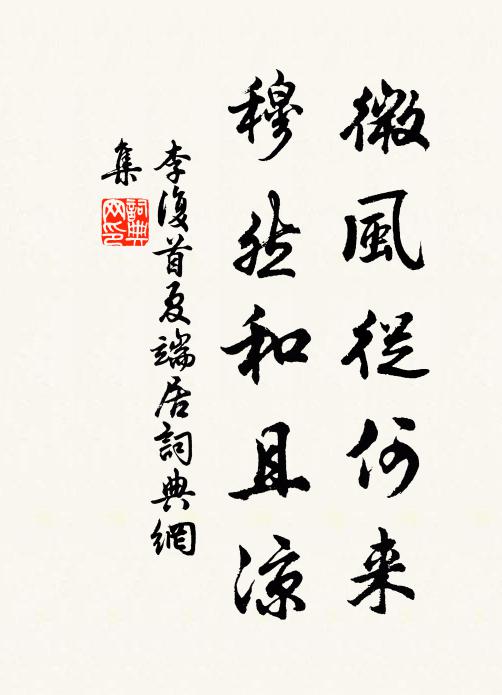 微風從何来
穆然和且涼
李復首夏端居詞典網
集
詞典
网印